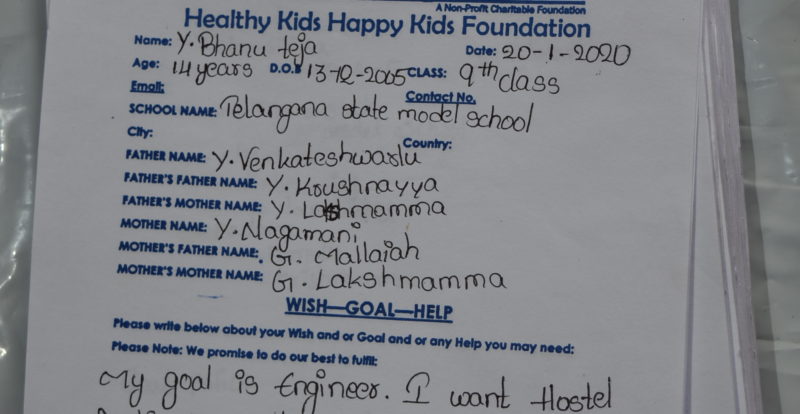 A Non-Profit Charitable Foundation
Healthy Kids Happy Kids Foundation
Name: Y. Bhanu teja Date: 20-1-2020
Age: 14 years D.O.B 13-12-2005 CLASS: 9th class
Email: Contact No.
SCHOOL NAME: Telangana state model school
City: Country:
FATHER NAME: Y. Venkateshwarlu
FATHER'S FATHER NAME: Y. Koushnayya
FATHER'S MOTHER NAME: Y. Lakshmamma
MOTHER NAME: Y. Nagamani
MOTHER'S FATHER NAME: G. Mallaiah
MOTHER'S MOTHER NAME: G. Lakshmamma
WISH—GOAL—HELP
Please write below about your Wish and or Goal and or any Help you may need:
Please Note: We promise to do our best to fulfil:
My goal is Engineer. I want Hostel